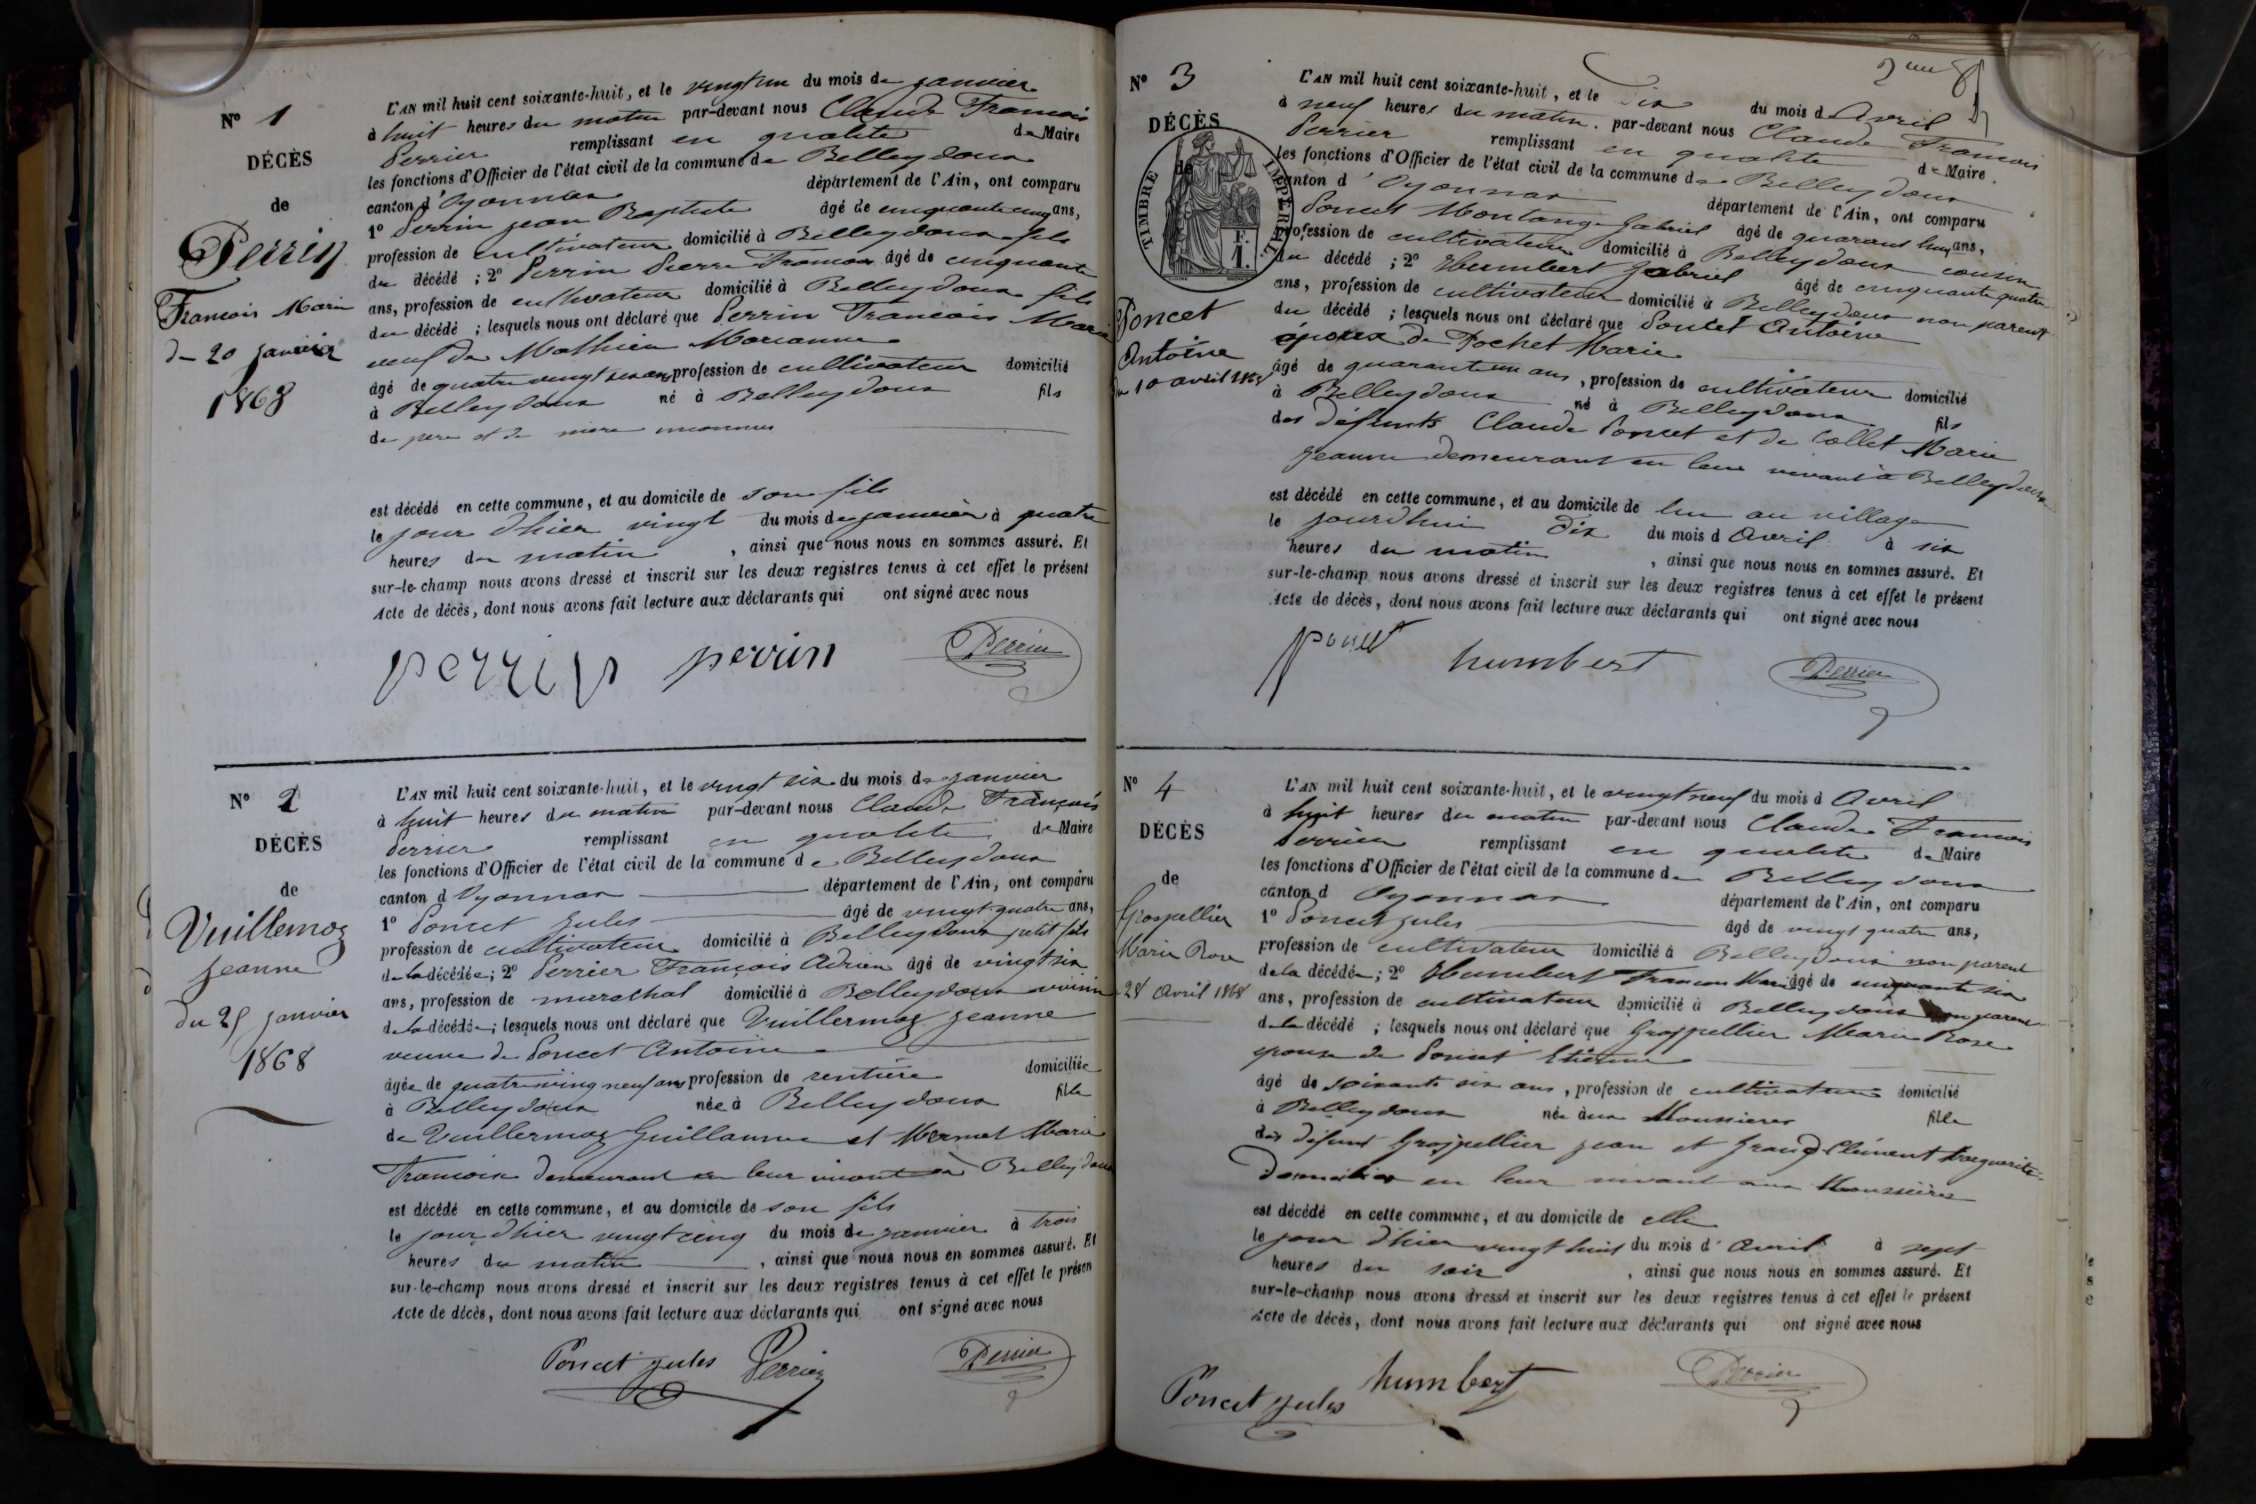 N° 1
DÉCÈS
de
Perrin
François Marie
du 20 janvier
1868
L'AN mil huit cent soixante-huit, et le vingt un du mois de janvier
à huit heures du matin par-devant nous Claude François
Perrier remplissant en qualité de Maire
les fonctions d'Officier de l'état civil de la commune de Belleydoux
canton d'Oyonnax département de l'Ain, ont comparu
1° Perrin jean Baptiste âgé de cinquante cinq ans,
profession de cultivateur domicilié à Belleydoux fils
du décédé ; 2° Perrin Pierre François âgé de cinquante
ans, profession de cultivateur domicilié à Belleydoux fils
du décédé ; lesquels nous ont déclaré que Perrin François Marie
veuf de Mathieu Marianne
âgé de quatre vingt ans, profession de cultivateur domicilié
à Belleydoux né à Belleydoux fils
de père et de mère inconnus
est décédé en cette commune, et au domicile de son fils
le jour d'hier vingt du mois de janvier à quatre
heures du matin , ainsi que nous nous en sommes assuré. Et
sur-le-champ nous avons dressé et inscrit sur les deux registres tenus à cet effet le présent
Acte de décès, dont nous avons fait lecture aux déclarants qui ont signé avec nous
perrin perrin Perrier
N° 2
DÉCÈS
de
Vuillermoz
jeanne
du 25 janvier
1868
L'AN mil huit cent soixante-huit, et le vingt six du mois de janvier
à huit heures du matin par-devant nous Claude François
Perrier remplissant en qualité de Maire
les fonctions d'Officier de l'état civil de la commune de Belleydoux
canton d'Oyonnax département de l'Ain, ont comparu
1° Poncet jules âgé de vingt quatre ans,
profession de cultivateur domicilié à Belleydoux petit fils
de la décédée ; 2° Perrier François Adrien âgé de vingt six
ans, profession de marechal domicilié à Belleydoux voisin
de la décédée ; lesquels nous ont déclaré que Vuillermoz jeanne
veuve de Poncet Antoine
âgée de quatre vingt neuf ans profession de rentière domiciliée
à Belleydoux née à Belleydoux fille
de Vuillermoz Guillaume et Mermet Marie
Françoise demeurant en leur vivant à Belleydoux
est décédé en cette commune, et au domicile de son fils
le jour d'hier vingt cinq du mois de janvier à trois
heures du matin , ainsi que nous nous en sommes assuré. Et
sur-le-champ nous avons dressé et inscrit sur les deux registres tenus à cet effet le présen
Acte de décès, dont nous avons fait lecture aux déclarants qui ont signé avec nous
Poncet jules Perrier Perrier
N° 3
DÉCÈS
de
TIMBRE IMPÉRIAL
F.
1.
Poncet
Antoine
du 10 avril 1868
L'AN mil huit cent soixante-huit, et le Dix du mois d Avril
à neuf heures du matin par-devant nous Claude François
Perrier remplissant en qualité de Maire
les fonctions d'Officier de l'état civil de la commune de Belleydoux
canton d'Oyonnax département de l'Ain, ont comparu
Poncet Montange Gabriel âgé de quarante ans,
profession de cultivateur domicilié à Belleydoux cousin
du décédé ; 2° Humbert Gabriel âgé de cinquante quatre
ans, profession de cultivateur domicilié à Belleydoux non parent
du décédé ; lesquels nous ont déclaré que Poncet Antoine
époux de Pochet Marie
âgé de quarante un ans, profession de cultivateur domicilié
à Belleydoux né à Belleydoux fils
des défunts Claude Poncet et de Collet Marie
jeanne demeurant en leur vivant à Belleydoux
est décédé en cette commune, et au domicile de lui au village
le jourd'hui Dix du mois d Avril à six
heures du matin , ainsi que nous nous en sommes assuré. Et
sur-le-champ nous avons dressé et inscrit sur les deux registres tenus à cet effet le présent
Acte de décès, dont nous avons fait lecture aux déclarants qui ont signé avec nous
poncet humbert Perrier
N° 4
DÉCÈS
de
Grospellier
Marie Rose
28 Avril 1868
L'AN mil huit cent soixante-huit, et le vingt neuf du mois d Avril
à huit heures du matin par-devant nous Claude François
Perrier remplissant en qualité de Maire
les fonctions d'Officier de l'état civil de la commune de Belleydoux
canton d Oyonnax département de l'Ain, ont comparu
1° Poncet jules âgé de vingt quatre ans,
profession de cultivateur domicilié à Belleydoux non parent
de la décédée ; 2° Humbert François Marie âgé de cinquante six
ans, profession de cultivateur domicilié à Belleydoux non parent
de la décédé ; lesquels nous ont déclaré que Grospellier Marie Rose
epouse de Poncet Etienne
âgé de soixante six ans, profession de cultivateur domicilié
à Belleydoux née aux Moussieres fille
des défunt Grospellier jean et Grand-Clément Marguerite
domiciliés en leur vivant aux Moussières
est décédé en cette commune, et au domicile de elle
le jour d'hier vingt huit du mois d'Avril à sept
heures du soir , ainsi que nous nous en sommes assuré. Et
sur-le-champ nous avons dressé et inscrit sur les deux registres tenus à cet effet le présent
Acte de décès, dont nous avons fait lecture aux déclarants qui ont signé avec nous
Poncet jules humbert Perrier